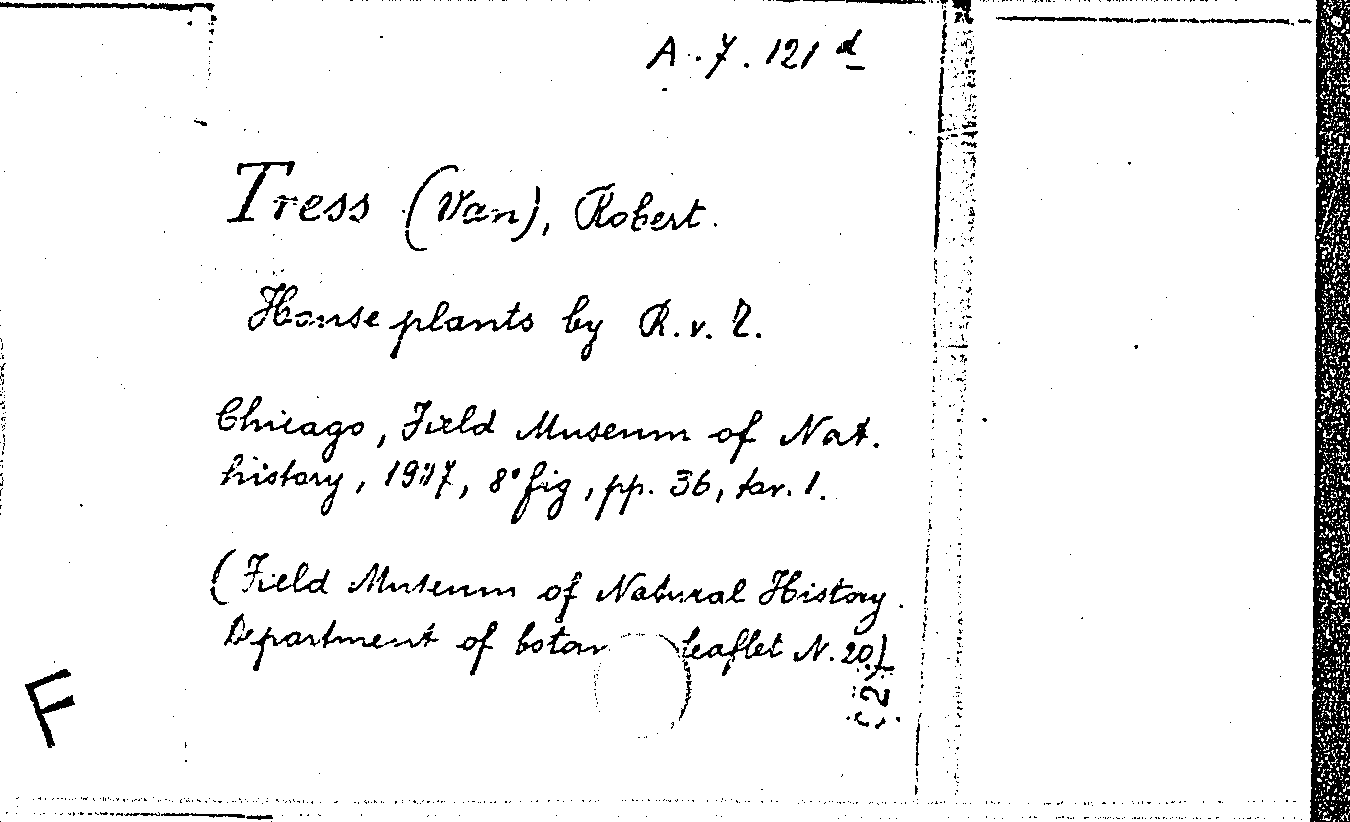 A. 7. 121 d
Tress (Van), Robert.
House plants by R. v. T.
Chicago, Field Museum of Nat.
history, 1937, 8° fig, pp. 36, tav. 1.
(Field Museum of Natural History.
Department of botan leaflet N. 20)
F